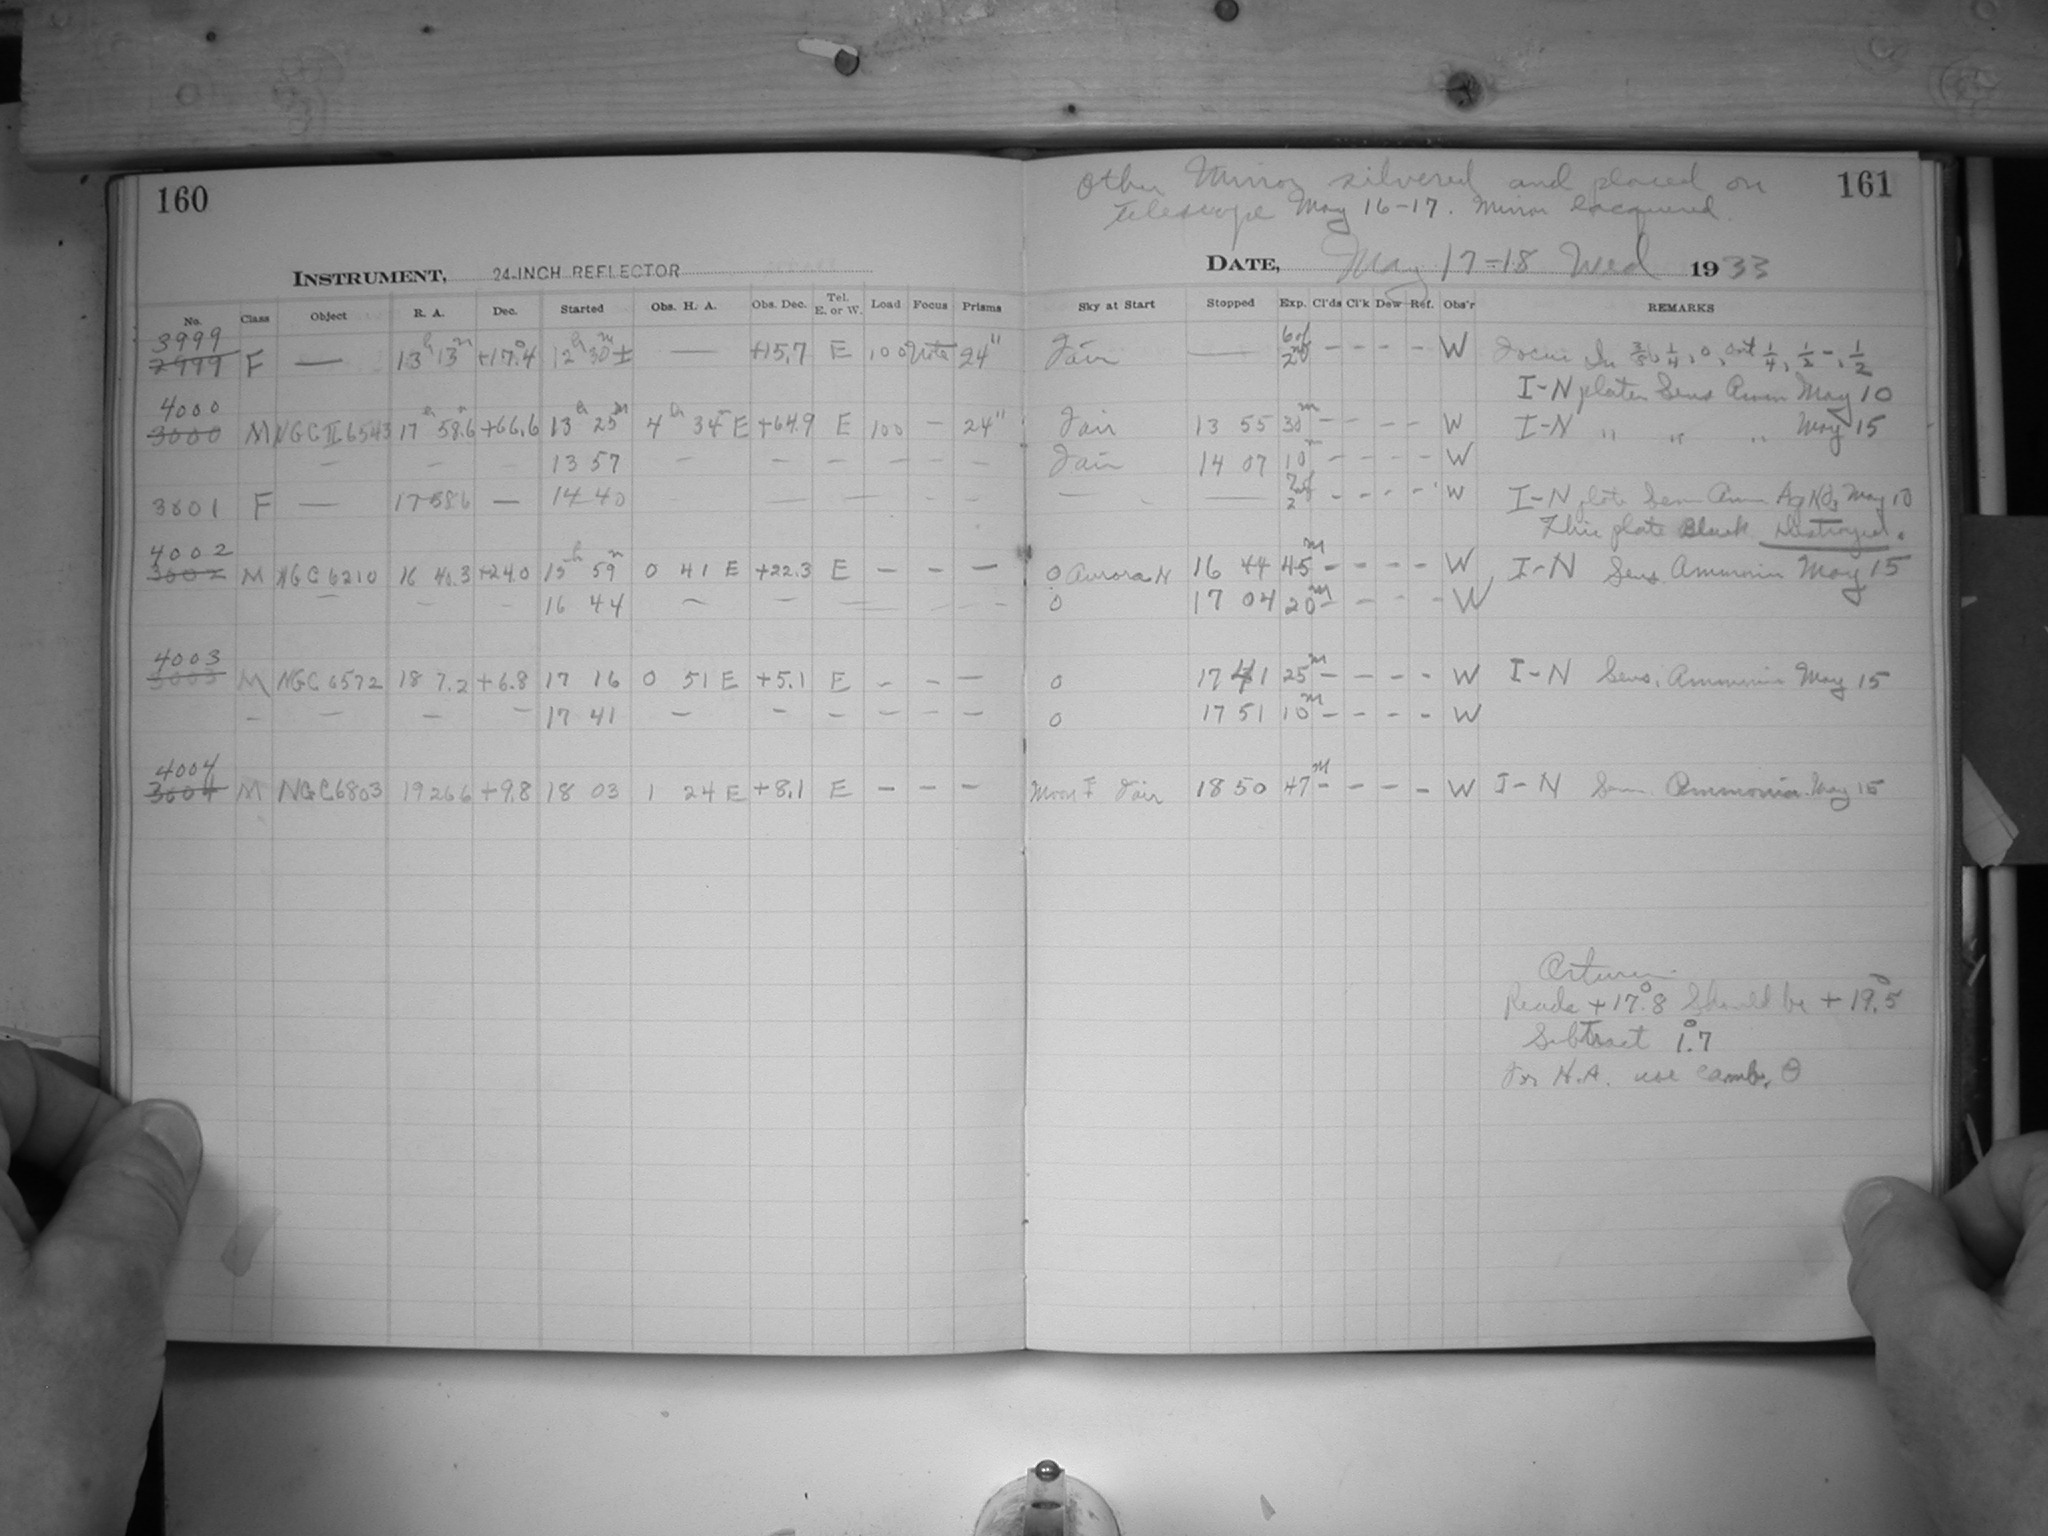 160
INSTRUMENT, 24-INCH REFLECTOR
No. Class Object R. A. Dec. Started Obs. H. A. Obs. Dec. Tel. E. or W. Load Focus Prisms
3999
2999 F — 13h 13m +17°.4 12h 30m ± — +15.7 E 100 Note 24"
4000
3000 M NGC II 6543 17h 58.6 +66.6 13h 25m 4h 34m E +64.9 E 100 - 24"
— — — 13 57 — — — — — —
3001 F — 17 58.6 — 14 40
4002
3002 M NGC 6210 16 40.3 +24.0 15h 59m 0 41 E +22.3 E - - -
— — — 16 44 — — — — — —
4003
3003 M NGC 6572 18 7.2 +6.8 17 16 0 51 E +5.1 E - - -
— — — — 17 41 — — — — — —
4004
3004 M NGC 6803 19 26.6 +9.8 18 03 1 24 E +8.1 E - - -
161
Other Mirror silvered and placed on
telescope May 16-17. Mirror lacquered.
DATE, May 17-18 Wed 1933
Sky at Start Stopped Exp. Cl'ds Cl'k Dew Ref. Obs'r REMARKS
Fair — 6 of 2m W Focus In 1/4, 0, out 1/4, 1/2 -, 1/2
I-N plates Sens Amm May 10
Fair 13 55 30m - - - - W I-N " " " May 15
Fair 14 07 10m - - - - W
— — 2 - - - - W I-N plate Sens Amm May 10
This plate Black Destroyed.
0 Aurora N 16 44 45m - - - - W I-N Sens. Ammonia May 15
0 17 04 20m - - - - W
0 17 41 25m - - - - W I-N Sens. Ammonia May 15
0 17 51 10m - - - - W
Moon F Fair 18 50 47m - - - - W I-N Sens. Ammonia May 15
Arturus
Reads +17°.8 Should be +19°.5
Subtract 1°.7
For H.A. use Camb. θ